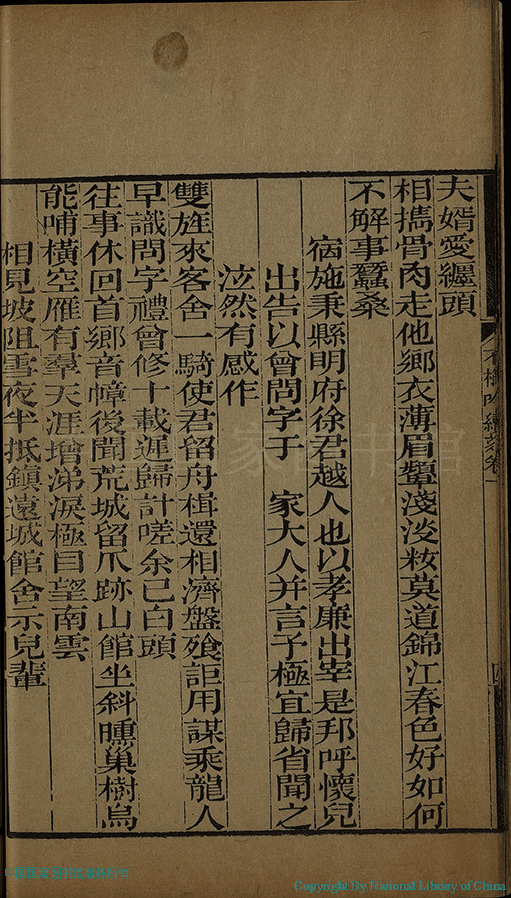 夫婿愛纏頭
相攜骨肉走他鄉衣薄眉顰淺淡妝莫道錦江春色好如何
不解事蠶桑
宿施秉縣明府徐君越人也以孝廉出宰是邦呼懷兒
出告以曾問字于 家大人并言子極宜歸省聞之
泫然有感作
雙旌來客舍一騎使君留舟楫還相濟盤飧詎用謀乘龍人
早識問字禮曾修十載遲歸計嗟余已白頭
往事休回首鄉音幛後聞荒城留爪跡山館坐斜曛巢樹烏
能哺橫空雁有羣天涯增涕淚極目望南雲
相見坡阻雪夜半抵鎮遠城館舍示兒輩
Copyright By National Library of China